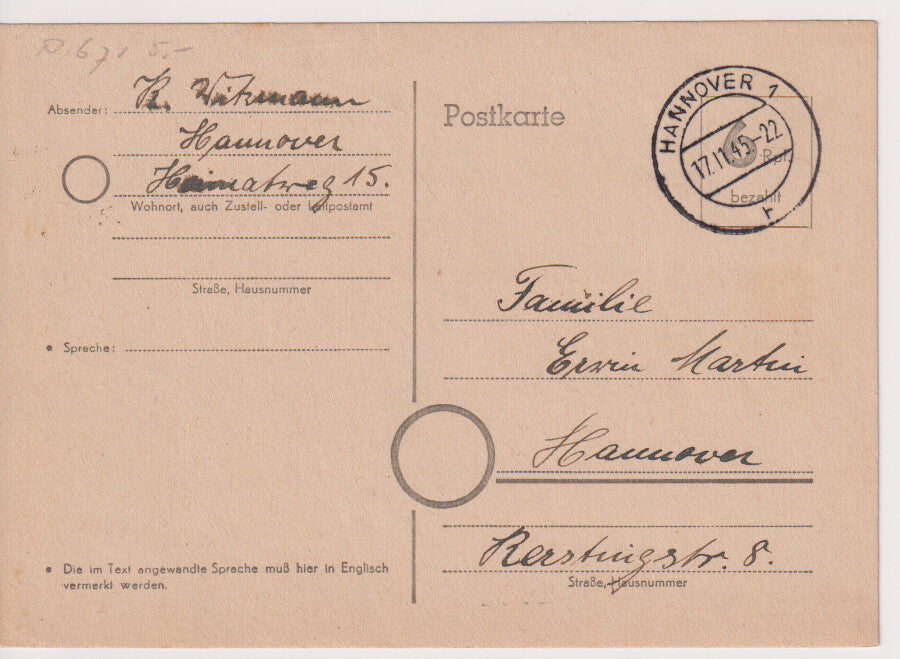 P. 671 5.-
Absender: K. Witzmann
Hannover
Heimatweg 15.
Wohnort, auch Zustell- oder Leitpostamt
Straße, Hausnummer
* Sprache:
* Die im Text angewandte Sprache muß hier in Englisch
vermerkt werden.
Postkarte
HANNOVER 1
17.11.45.-22
r
6
Rpf.
bezahlt
Familie
Erwin Martin
Hannover
Kerstingstr. 8.
Straße, Hausnummer